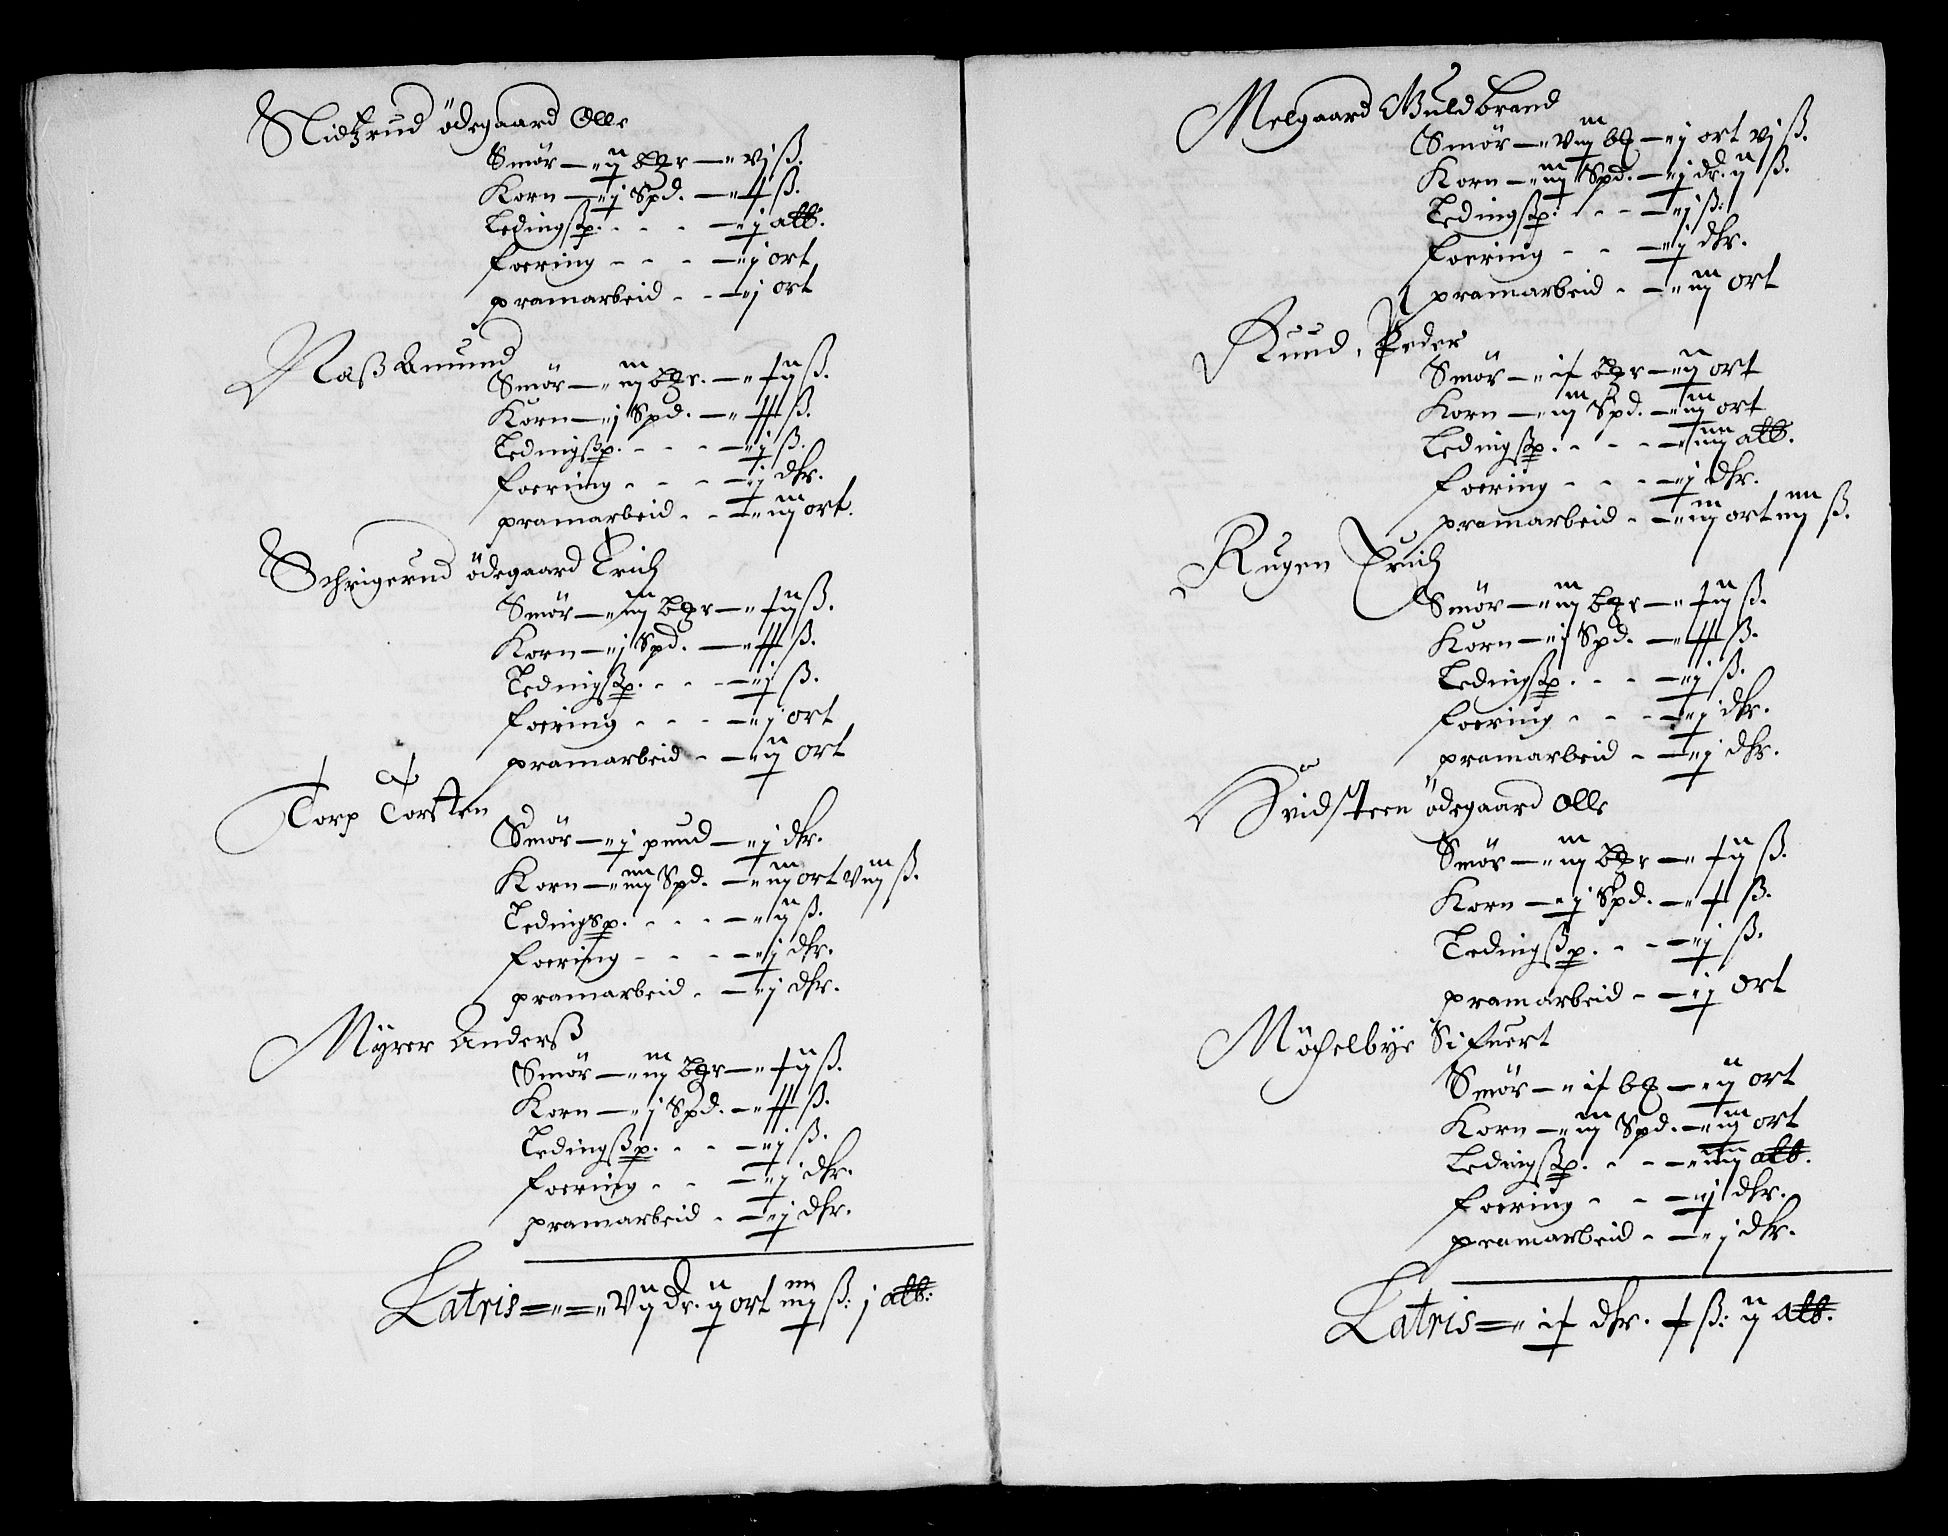 Nidtzrud ödegaard Olle
Smör — ij bzr — vj ß.
Korn — j Spd. — x ß.
Ledingßp. - - - j alb:
Foering - - - j ort
pramarbeid - - j ort
Naß Amund
Smör — iij bzr. — xij ß.
Korn — j Spd. — xx ß.
Ledingßp. - - - j ß.
Foering - - - j dlr.
pramarbeid - - iij ort.
Schrigerud ödegaard Erich
Smör — iij bzr — xij ß.
Korn — j Spd. — xx ß.
Ledingßp. - - - j ß.
Foering - - - j ort
pramarbeid - - ij ort
Torp Torsten
Smör — j pund — j dlr.
Korn — iiij Spd. — iij ort viij ß.
Ledingsp. - - - ij ß.
Foering - - - j dlr.
pramarbeid - - j dlr.
Myrer Anderß
Smör — iij bzr — xij ß.
Korn — j Spd. — xx ß.
Ledingßp. - - - j ß.
Foering - - j dlr.
pramarbeid - - j dlr.
Latris = = vij dr. ij ort iiij ß: j alb:
Melgaard Guldbrand
Smör — viij bz — j ort vj ß.
Korn — iiij Spd. — j dr. ij ß.
Ledingßp. - - - j ß:
Foering - - j dlr.
pramarbeid - - iij ort
Rund, Peder
Smör — ix bzr — ij ort
Korn — iij Spd. — iij ort
Ledingßp. - - - iiij alb.
Foering - - - j dlr.
pramarbeid - - iij ort iiij ß.
Rugen Erich
Smör — iij bzr — xij ß.
Korn — j Spd. — xx ß.
Ledingßp. - - - j ß.
Foering - - - j dlr.
pramarbeid - - j dlr.
Hvidsteen ödegaard Olle
Smör — iij bzr — xij ß.
Korn — j Spd. — x ß.
Ledingßp. - - - j ß.
pramarbeid - - j ort
Möchelbye Sifuert
Smör — ix bz — ij ort
Korn — iij Spd. — iij ort
Ledingßp. - - - iiij alb.
Foering - - - j dlr.
pramarbeid - - j dlr.
Latris = ix dlr. x ß: ij alb.